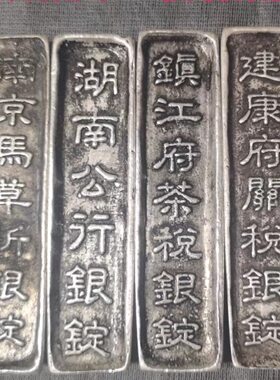 建康府關稅銀錠
鎮江府茶稅銀錠
湖南公行銀錠
南京馬草折銀錠